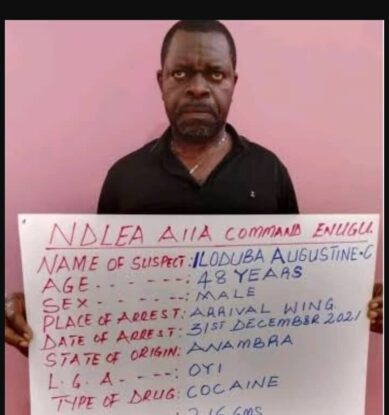 NDLEA AIIA COMMAND ENUGU
NAME OF SUSPECT: ILODUBA AUGUSTINE.C
AGE - - - - - -: 48 YEARS
SEX - - - - - -: MALE
PLACE OF ARREST: ARRIVAL WING
DATE OF ARREST: 31ST DECEMBER 2021
STATE OF ORIGIN: ANAMBRA
L. G. A - - - -: OYI
TYPE OF DRUG: COCAINE
GMS